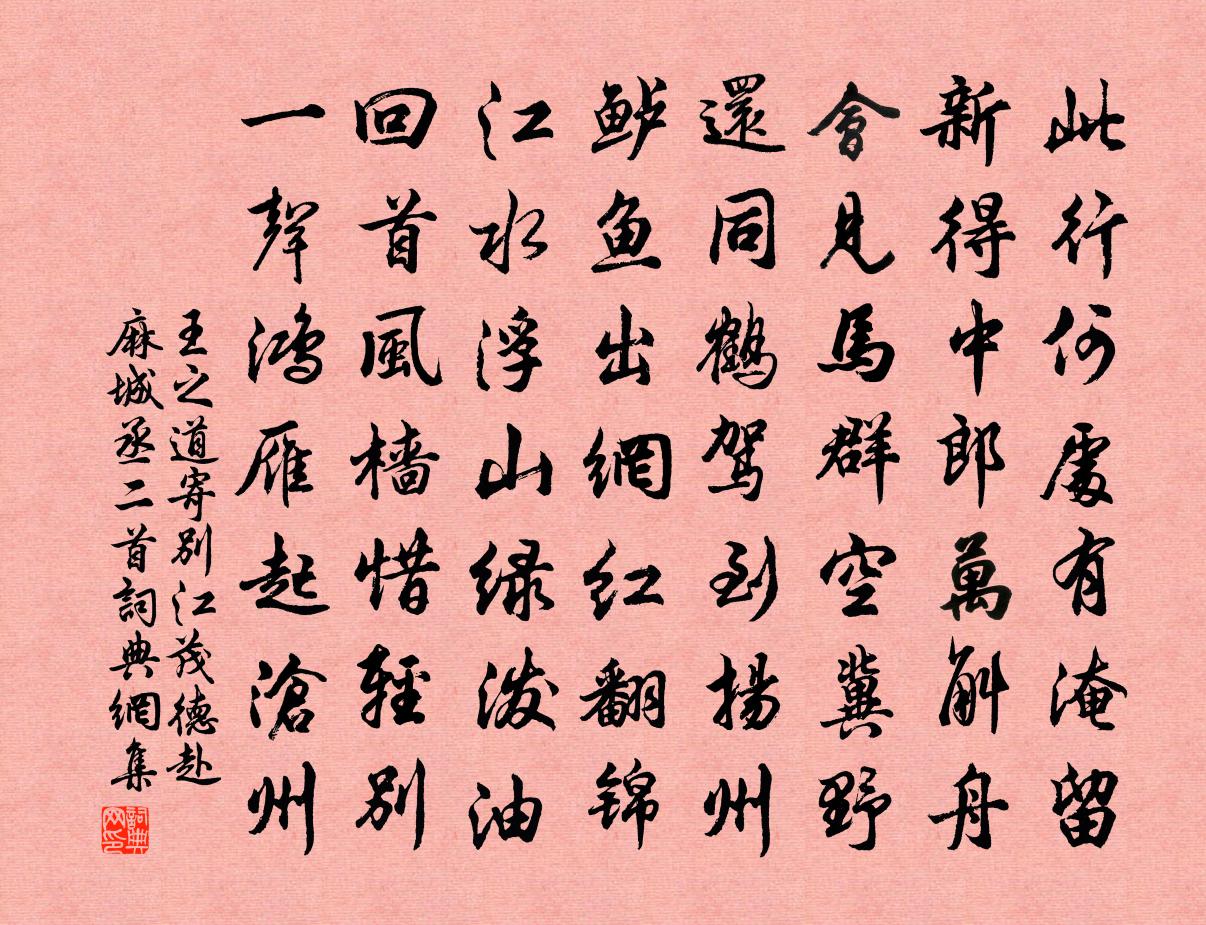 此行何處有淹留
新得中郎萬斛舟
會見馬群空冀野
還同鶴駕到揚州
鲈鱼出網紅翻锦
江水浮山緑潑油
回首風檣惜輕別
一聲鸿雁起滄州
王之道寄別江茂德赴
麻城丞二首詞典網集
詞典
网印